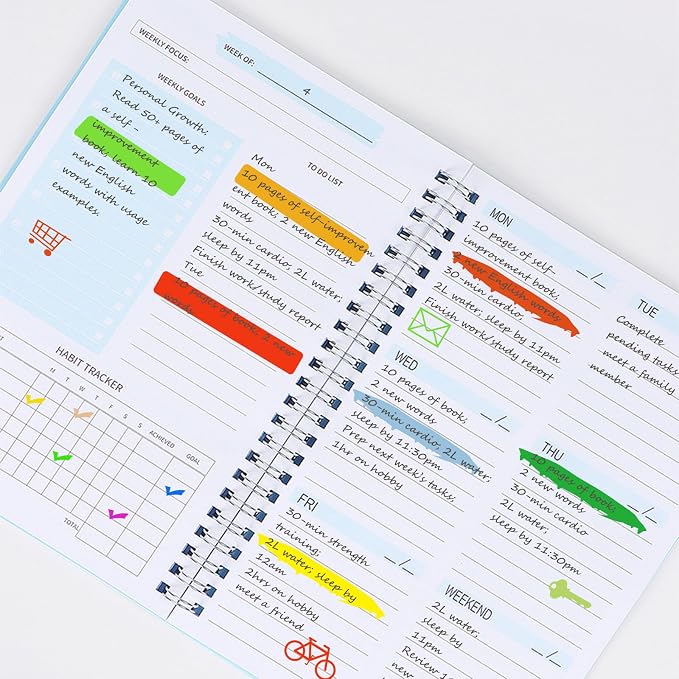 WEEKLY FOCUS:
WEEK OF:
4
WEEKLY GOALS
Personal Growth:
Read 50+ pages of
a self-
improvement
book; learn 10
new English
words with usage
examples.
TO DO LIST
Mon
10 pages of self-improvem
ent book; 2 new English
words
30-min cardio; 2L water;
sleep by 11pm
Finish work/study report
Tue
10 pages of book; 2 new
words
HABIT TRACKER
M T W T F S S ACHIEVED GOAL
TOTAL
MON
_/_
10 pages of self-
improvement book;
2 new English words
30 min cardio;
2L water; sleep by 11pm
Finish work/study report
TUE
Complete
pending tasks
meet a family
member
WED
_/_
10 pages of book;
2 new words
30-min cardio; 2L water;
sleep by 11:30pm
Prep next week's tasks;
1hr on hobby
THU
_/_
10 pages of book;
2 new words
30-min cardio
2L water;
sleep by 11:30pm
FRI
_/_
30-min strength
training;
2L water; sleep by
12am
2hrs on hobby
meet a friend
WEEKEND
2L water;
sleep by
11pm
Review 1
week